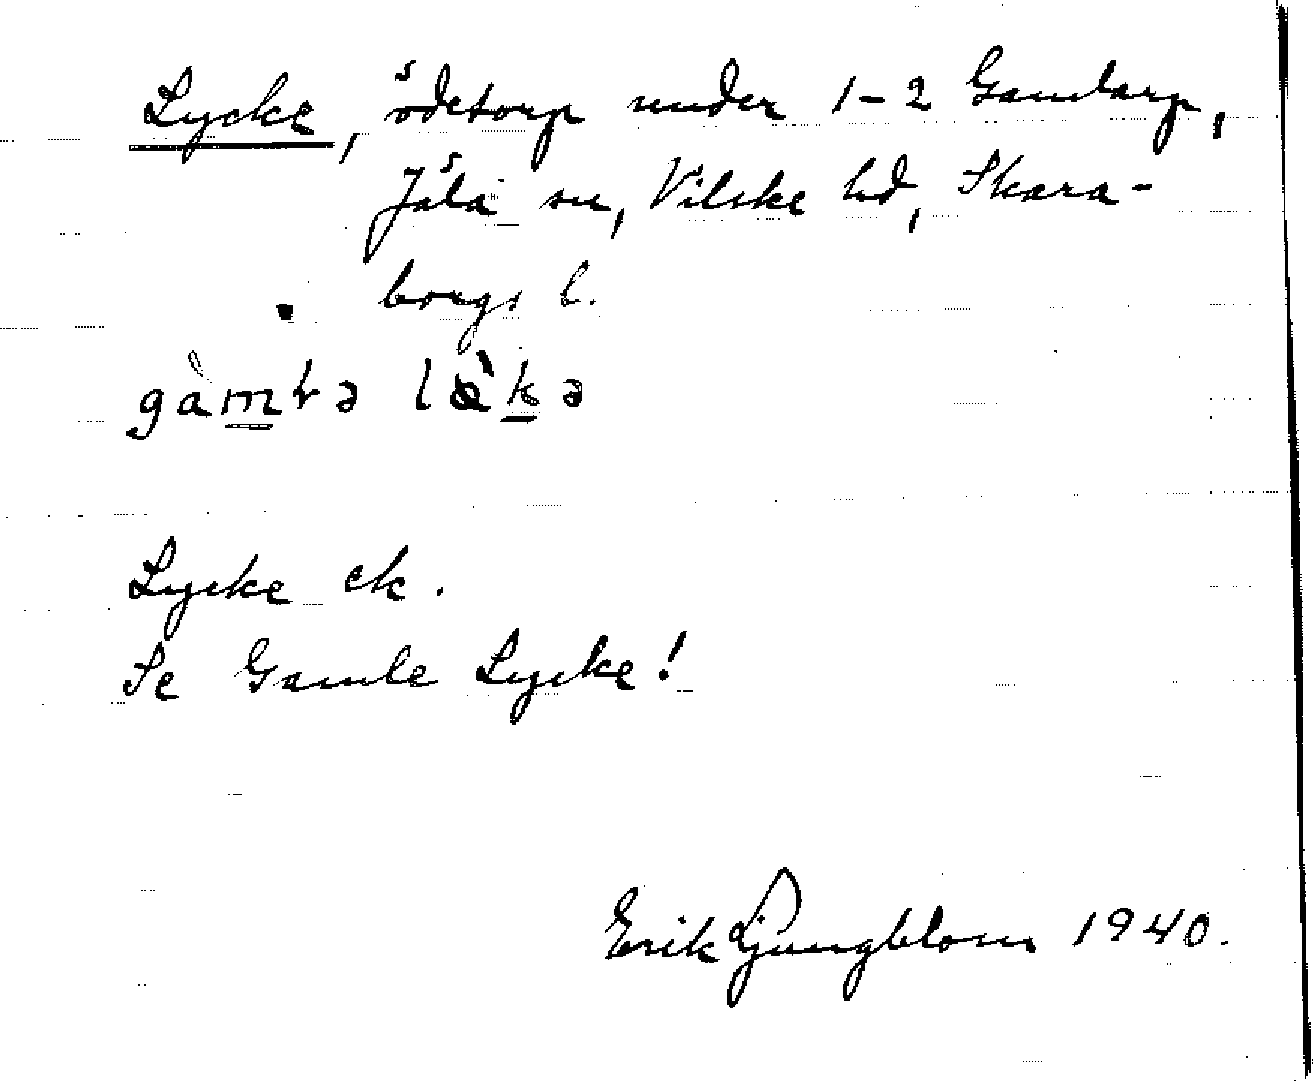 Lycke, ödetorp under 1-2 Gamlarp,
Jäla sn, Vilske hd, Skara-
borgs l.
gàmɫə lə̀kə
Lycke ek.
Se Gamle Lycke!
Erik Ljungblom 1940.